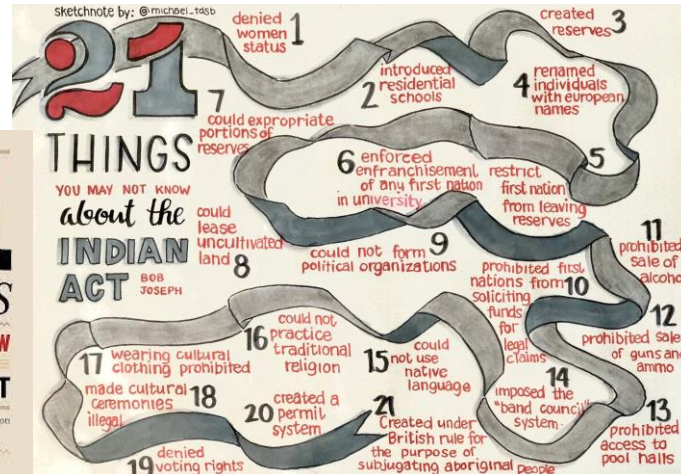 sketchnote by: @michael_tdsb
21
THINGS
YOU MAY NOT KNOW
about the
INDIAN
ACT
BOB
JOSEPH
1
denied
women
status
2
introduced
residential
schools
created
reserves
3
4
renamed
individuals
with european
names
5
restrict
first nation
from leaving
reserves
6
enforced
enfranchisement
of any first nation
in university
7
could expropriate
portions of
reserves
could
lease
uncultivated
land
8
could not form
political organizations
9
prohibited first
nations from
soliciting
funds
for
legal
claims
10
11
prohibited
sale of
12
prohibited sale
of guns and
ammo
13
prohibited
access to
pool halls
14
imposed the
"band council"
system
15
could
not use
native
language
16
could not
practice
traditional
religion
17
wearing cultural
clothing prohibited
made cultural
ceremonies
illegal
18
19
denied
voting rights
20
created a
permit
system
21
Created under
British rule for
the purpose of
subjugating aboriginal people
S
W
T
on